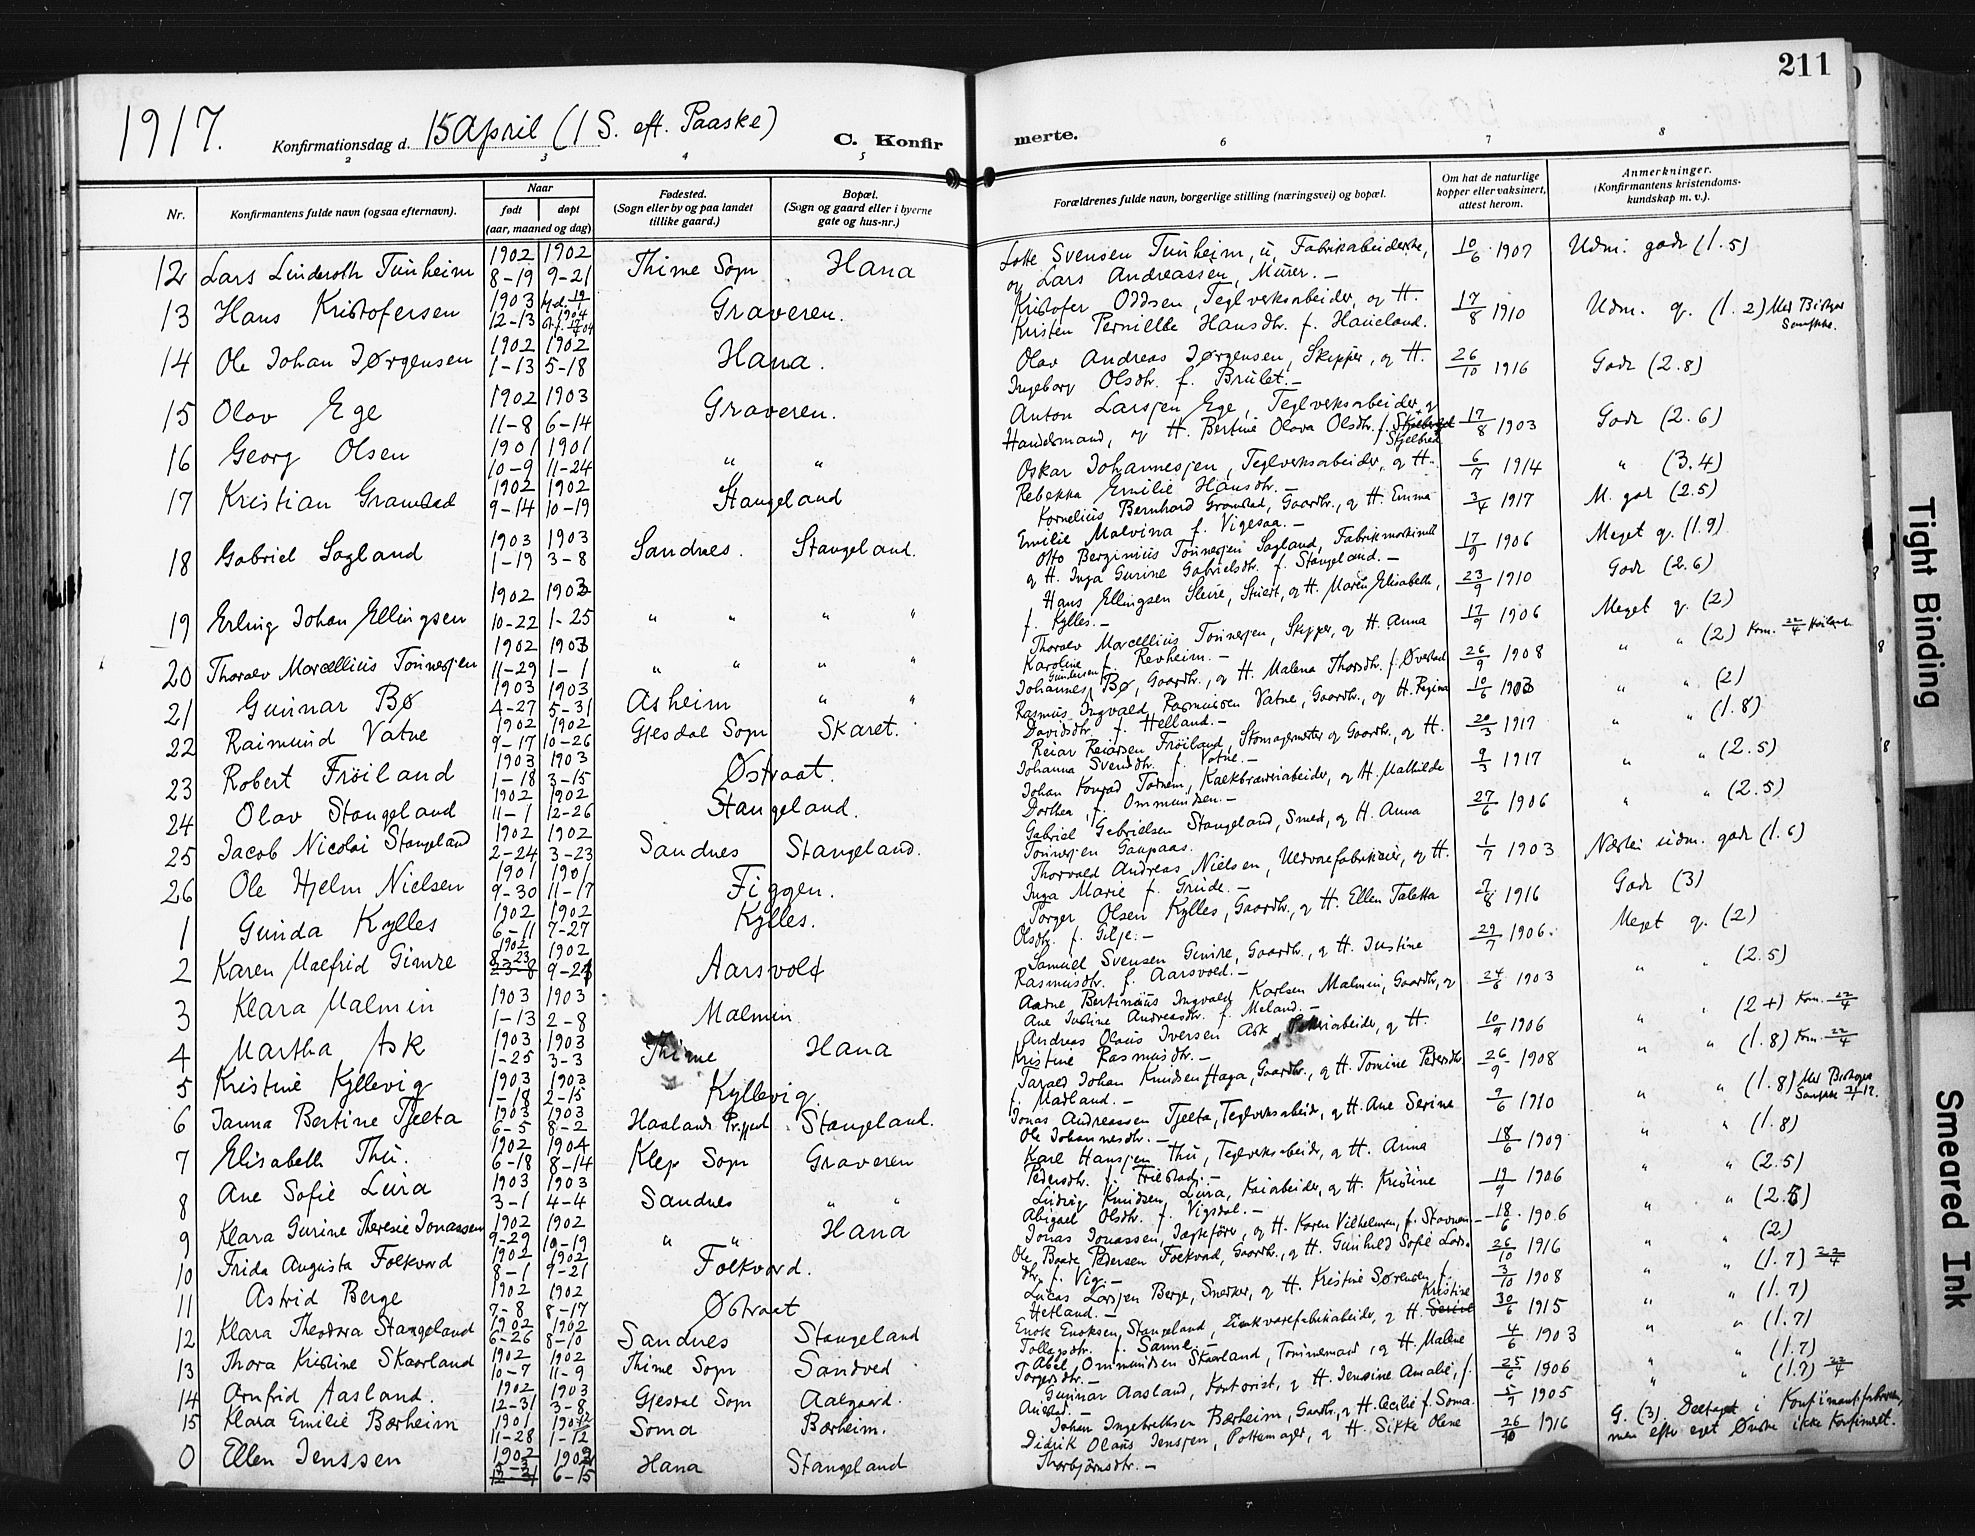 211
1917. Konfirmationsdag d. 15 April (1 S. eft. Paaske) C. Konfirmerte.
2 3 4 5 6 7 8
Nr. Konfirmantens fulde navn (ogsaa efternavn). Naar født døpt (aar, maaned og dag) Fødested. (Sogn eller by og paa landet tillike gaard.) Bopæl. (Sogn og gaard eller i byerne gate og hus-nr.) Forældrenes fulde navn, borgerlige stilling (næringsvei) og bopæl. Om hat de naturlige kopper eller vaksinert, attest herom. Anmerkninger. (Konfirmantens kristendoms-kundskap m. v.).
12 Lars Linderoth Tunheim 1902 8-19 1902 9-21 Thime Sogn Hana Svensen Tunheim, u, Fabrikabeiderske, og Lars Andreassen, Murer. - 10/6 1907 Udm. godt (1.5)
13 Hans Kristofersen 1903 12-13 Graveren. Kristofer Oddsen, Teglverksarbeider, og H. Kristen Pernille Hansdtr. f. Haueland. 17/8 1910 Udm. g. (1.2)
14 Ole Johan Jørgensen 1902 1-13 1902 5-18 Hana. Olav Andreas Jørgensen, Skipper, og H. Ingeborg Olsdtr. f. Brulet. - 26/10 1916 Godt (2.8)
15 Olav Ege 1902 11-8 1903 6-14 Graveren. Anton Larsjen Ege, Teglverksarbeider, og Handelsmand, og H. Bertine Olava Olsdtr. f. Skjelbred 17/8 1903 Godt (2.6)
16 Georg Olsen 1901 10-9 1901 11-24 " " Oskar Johannesjen, Teglverksarbeider, og H. Rebekka Emilie Hansdtr. - 6/7 1914 " (3.4)
17 Kristian Gramstad 1902 9-14 1902 10-19 Stangeland Kornelius Bernhard Gramstad, Gaardbr., og H. Emma Emilie Malvina f. Vigesaa. - 3/4 1917 M. godt (2.5)
18 Gabriel Sagland 1903 1-19 1903 3-8 Sandnes. Stangeland. Otto Berginius Tønnesjen Sagland, og H. Inga Gurine Gabrielsdtr. f. Stangeland. - 17/9 1906 Meget g. (1.9)
19 Erling Johan Ellingsen 1902 10-22 1903 1-25 " " " " Hans Ellingsen Stuert, og H. Maren Elisabeth, f. Kylles. - 23/9 1910 Godt (2.6)
20 Thoralv Marcellius Tønnesjen 1902 11-29 1903 1-1 " " " " Thoralv Marcellius Tønnesjen, Skipper, og H. Anna Karoline f. Revheim. - 17/9 1906 Meget g. (2)
21 Gunnar Bø 1903 4-27 1903 5-31 Asheim " " Johannes Bø, Gaardbr., og H. Malena Thorsdtr. f. Øvestad 26/9 1908 " (2) Kom. 22/4
22 Raimund Vatne 1902 9-17 1902 10-26 Gjesdal Sogn Skaret. Rasmus Ingvald Rasmussen Vatne, Gaardbr., og H. Regina Davidsdtr. f. Helland. - 10/6 1903 " " (2)
23 Robert Frøiland 1903 1-18 1903 3-15 Østraat. Reiar Reiarsen Frøiland, Skomagermester og Gaardbr., og H. Johanna Svendsdtr. f. Vatne. - 20/3 1917 " " (1.8)
24 Olav Stangeland 1902 11-1 1902 12-26 Stangeland. Johan Konrad og H. Mathilde Dorthea f. Ommundsen. - 9/3 1917 " " (2.5)
25 Jacob Nicolai Stangeland 1902 2-24 1902 3-23 Sandnes Stangeland. Gabriel Gabrielsen Stangeland, Smed, og H. Anna Tønnesjen Gaupaas. 27/6 1906 " " (2.5)
26 Ole Hjelm Nielsen 1901 9-30 1901 11-17 Figgen. Thorvald Andreas Nielsen, Uldvarefabrikeier, og H. Inga Marie f. Grude. - 1/7 1903 Næsten udm. godt (1.6)
1 Gunda Kylles 1902 6-11 1902 7-27 Kylles. Torger Olsen Kylles, Gaardbr., og H. Ellen Taletta Olsdtr. f. Gilje. - 7/8 1916 Godt (3)
2 Karen Malfrid Gimre 1902 8-23 1902 9-21 Aarsvold Samuel Svensen Gimre, Gaardbr., og H. Justine Rasmusdtr. f. Aarsvold. - 29/7 1906. Meget g. (2)
3 Klara Malmin 1903 1-13 1903 2-8 Malmin Aadne Bertinius Ingvald Karlsen Malmin, Gaardbr., og Ane Justine Andreasdtr. f. Meland. - 24/6 1903 " " (2.5)
4 Martha Ask 1903 1-25 1903 3-3 Thime Hana Andreas Olaus Iversen Ask, og H. Kristine Rasmusdtr. - 10/9 1906 " " (2+) Kom. 22/4
5 Kristine Kyllevig 1903 1-18 1903 2-15 Kyllevig. Tarald Johan Knudsen Haga, Gaardbr., og H. Tomine Pedersdtr. f. Madland. - 26/9 1908 " " (1.8) Kom. 22/4
6 Janna Bertine Tjelta 1903 6-5 1903 8-2 Haalands Prgjeld Stangeland. Jonas Andreassen Tjelta, Teglverksarbeider, og H. Ane Serine Ole Johannesdtr. - 9/6 1910 " " (1.8)
7 Elisabeth Thu. 1902 6-18 1904 8-14 Klep Sogn Graveren Karl Hansjen Thu, Teglverksarbeider, og H. Anna Pedersdtr. f. Friestad. - 18/6 1909 " " (1.8)
8 Ane Sofie Lura 1903 3-1 1903 4-4 Sandnes " " Ludvig Knudsen Lura, Kaiarbeider, og H. Kristine Abigael Olsdtr. f. Vigsdal. - 19/9 1906 " " (2.5)
9 Klara Gurine Theresie Jonassen 1902 9-29 1902 10-19 " " Hana Jonas Jonassen, Jægtefører, og H. Karen Vilhelmsen, f. Stavnem - 18/6 1906 " " (2.5)
10 Frida Augusta Folkvord 1902 8-1 1902 9-21 Folkvord. Ole Baare Pedersen Folkvord, Gaardbr., og H. Gunhild Sofie Larsdtr. f. Vig. - 26/10 1916 " " (2)
11 Astrid Berge 1902 7-8 1902 8-17 Østraat Lucas Larsjen Berge, Snekker, og H. Kristine Sørensen f. Hetland. - 3/10 1908 " " (1.7) 22/4
12 Klara Theodora Stangeland 1902 6-26 1902 8-10 Sandnes Stangeland Enok Enoksen Stangeland, og H. Kristine Tollepsdtr. f. Sanne. - 30/6 1915 " " (1.7)
13 Thora Kristine Skaarland 1902 10-7 1902 11-9 Thime Sogn Sandved Abel Ommundsen Skaarland, Tømmermand, og H. Malene Torgersdtr. - 4/6 1903 " " (1.7)
14 Arnfrid Aasland. 1902 12-31 1903 3-8 Gjesdal Sogn Aalgaard. Gunnar Aasland, Kontorist, og H. Jensine Amalie, f. Auestad. - 25/6 1906 " " (1.7)
15 Klara Emilie Bærheim 1901 11-28 1902 1-12 Soma Bærheim. Johan Ingebretsen Bærheim, Gaardbr., og H. Cecilie f. Soma. 5/9 1905 " " (1.7) 22/4
0 Ellen Jenssen 1902 1902 6-15 Hana Stangeland Didrik Olaus Jensjen, Pottemager, og H. Sikke Olene Thorbjørnsdtr. - 26/10 1916 G. (3). Deltaget i Konfirmantforberedelsen, men efter eget Ønske ikke konfirmert.
Tight Binding
Smeared Ink